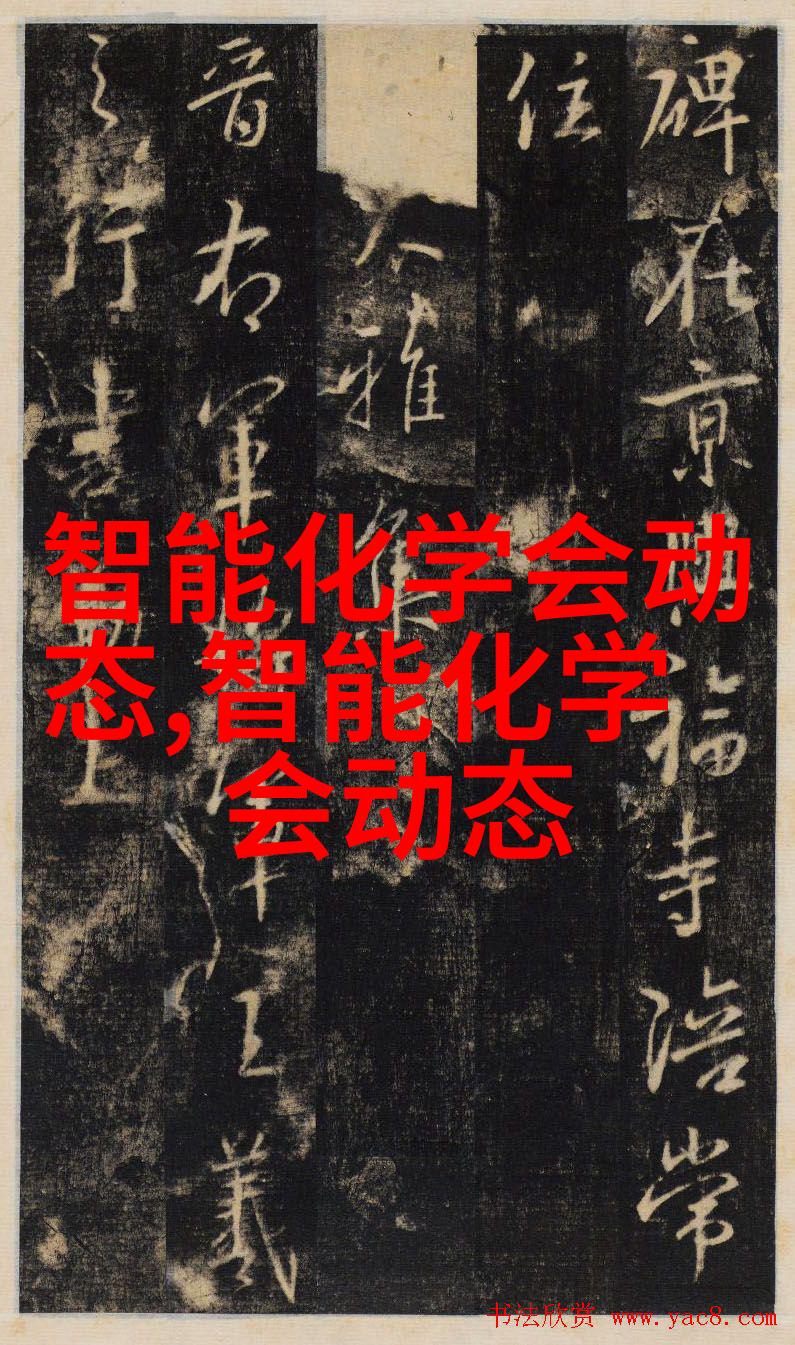 智能化学会动
态,智能化学
会动态
碑在京福寺陪常
住
大雅集
晋右軍軍王羲
之行書上
书法欣赏 www.yac8.com